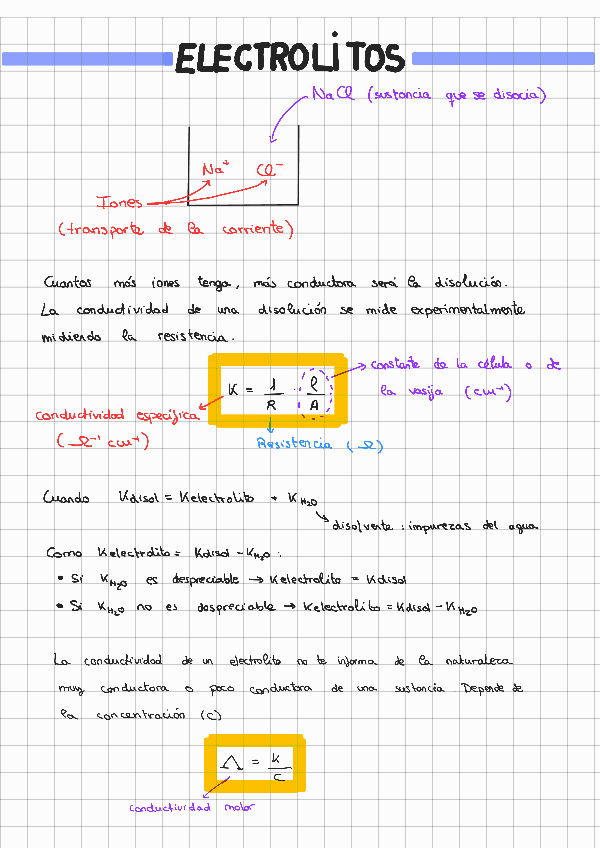 ELECTROLITOS
NaCl (sustancia que se disocia)
Na⁺ Cl⁻
Iones
(transporte de la corriente)
Cuantos más iones tenga, más conductora será la disolución.
La conductividad de una disolución se mide experimentalmente
midiendo la resistencia.
K = 1/R · l/A
constante de la célula o de
la vasija (cm⁻¹)
conductividad específica
(Ω⁻¹ cm⁻¹)
Resistencia (Ω)
Cuando Kdisol = Kelectrolito + K H₂O
disolvente : impurezas del agua
Como Kelectrolito = Kdisol - K H₂O :
• Si K H₂O es despreciable → Kelectrolito = Kdisol
• Si K H₂O no es despreciable → Kelectrolito = Kdisol - K H₂O
La conductividad de un electrolito no te informa de la naturaleza
muy conductora o poco conductora de una sustancia. Depende de
la concentración (c)
Λ = K/C
conductividad molar